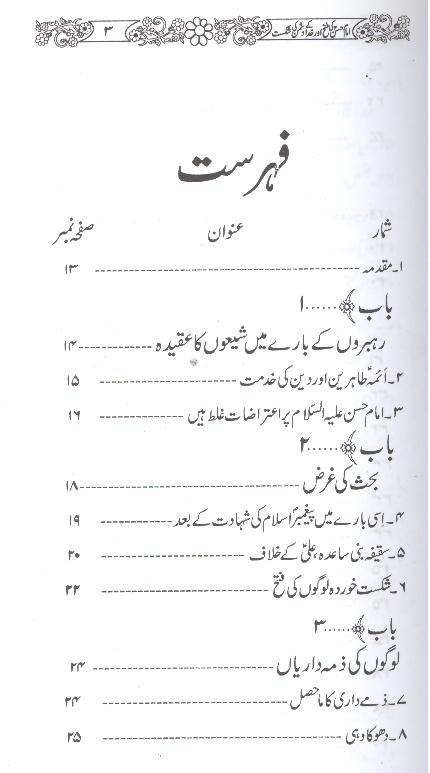 امام حسنؑ کی فتح اور غدار دشمن کی شکست ۳
فہرست
شمار عنوان صفحہ نمبر
۱۔ مقدمہ ------ ۱۳
باب ......۱
رہبروں کے بارے میں شیعوں کا عقیدہ ------ ۱۴
۲۔ آئمہؑ طاہرین اور دین کی خدمت ------ ۱۵
۳۔ امام حسن علیہ السّلام پر اعتراضات غلط ہیں ------ ۱۶
باب ......۲
بحث کی غرض ------ ۱۸
۴۔ اِسی بارے میں پیغمبرؐ اسلام کی شہادت کے بعد ------ ۱۹
۵۔ سقیفہ بنی ساعدہ، علیؑ کے خلاف ------ ۲۰
۶۔ شکست خوردہ لوگوں کی فتح ------ ۲۲
باب ......۳
لوگوں کی ذمہ داریاں ------ ۲۴
۷۔ ذمے داری کا ماحصل ------ ۲۴
۸۔ دھوکا دہی ------ ۲۵